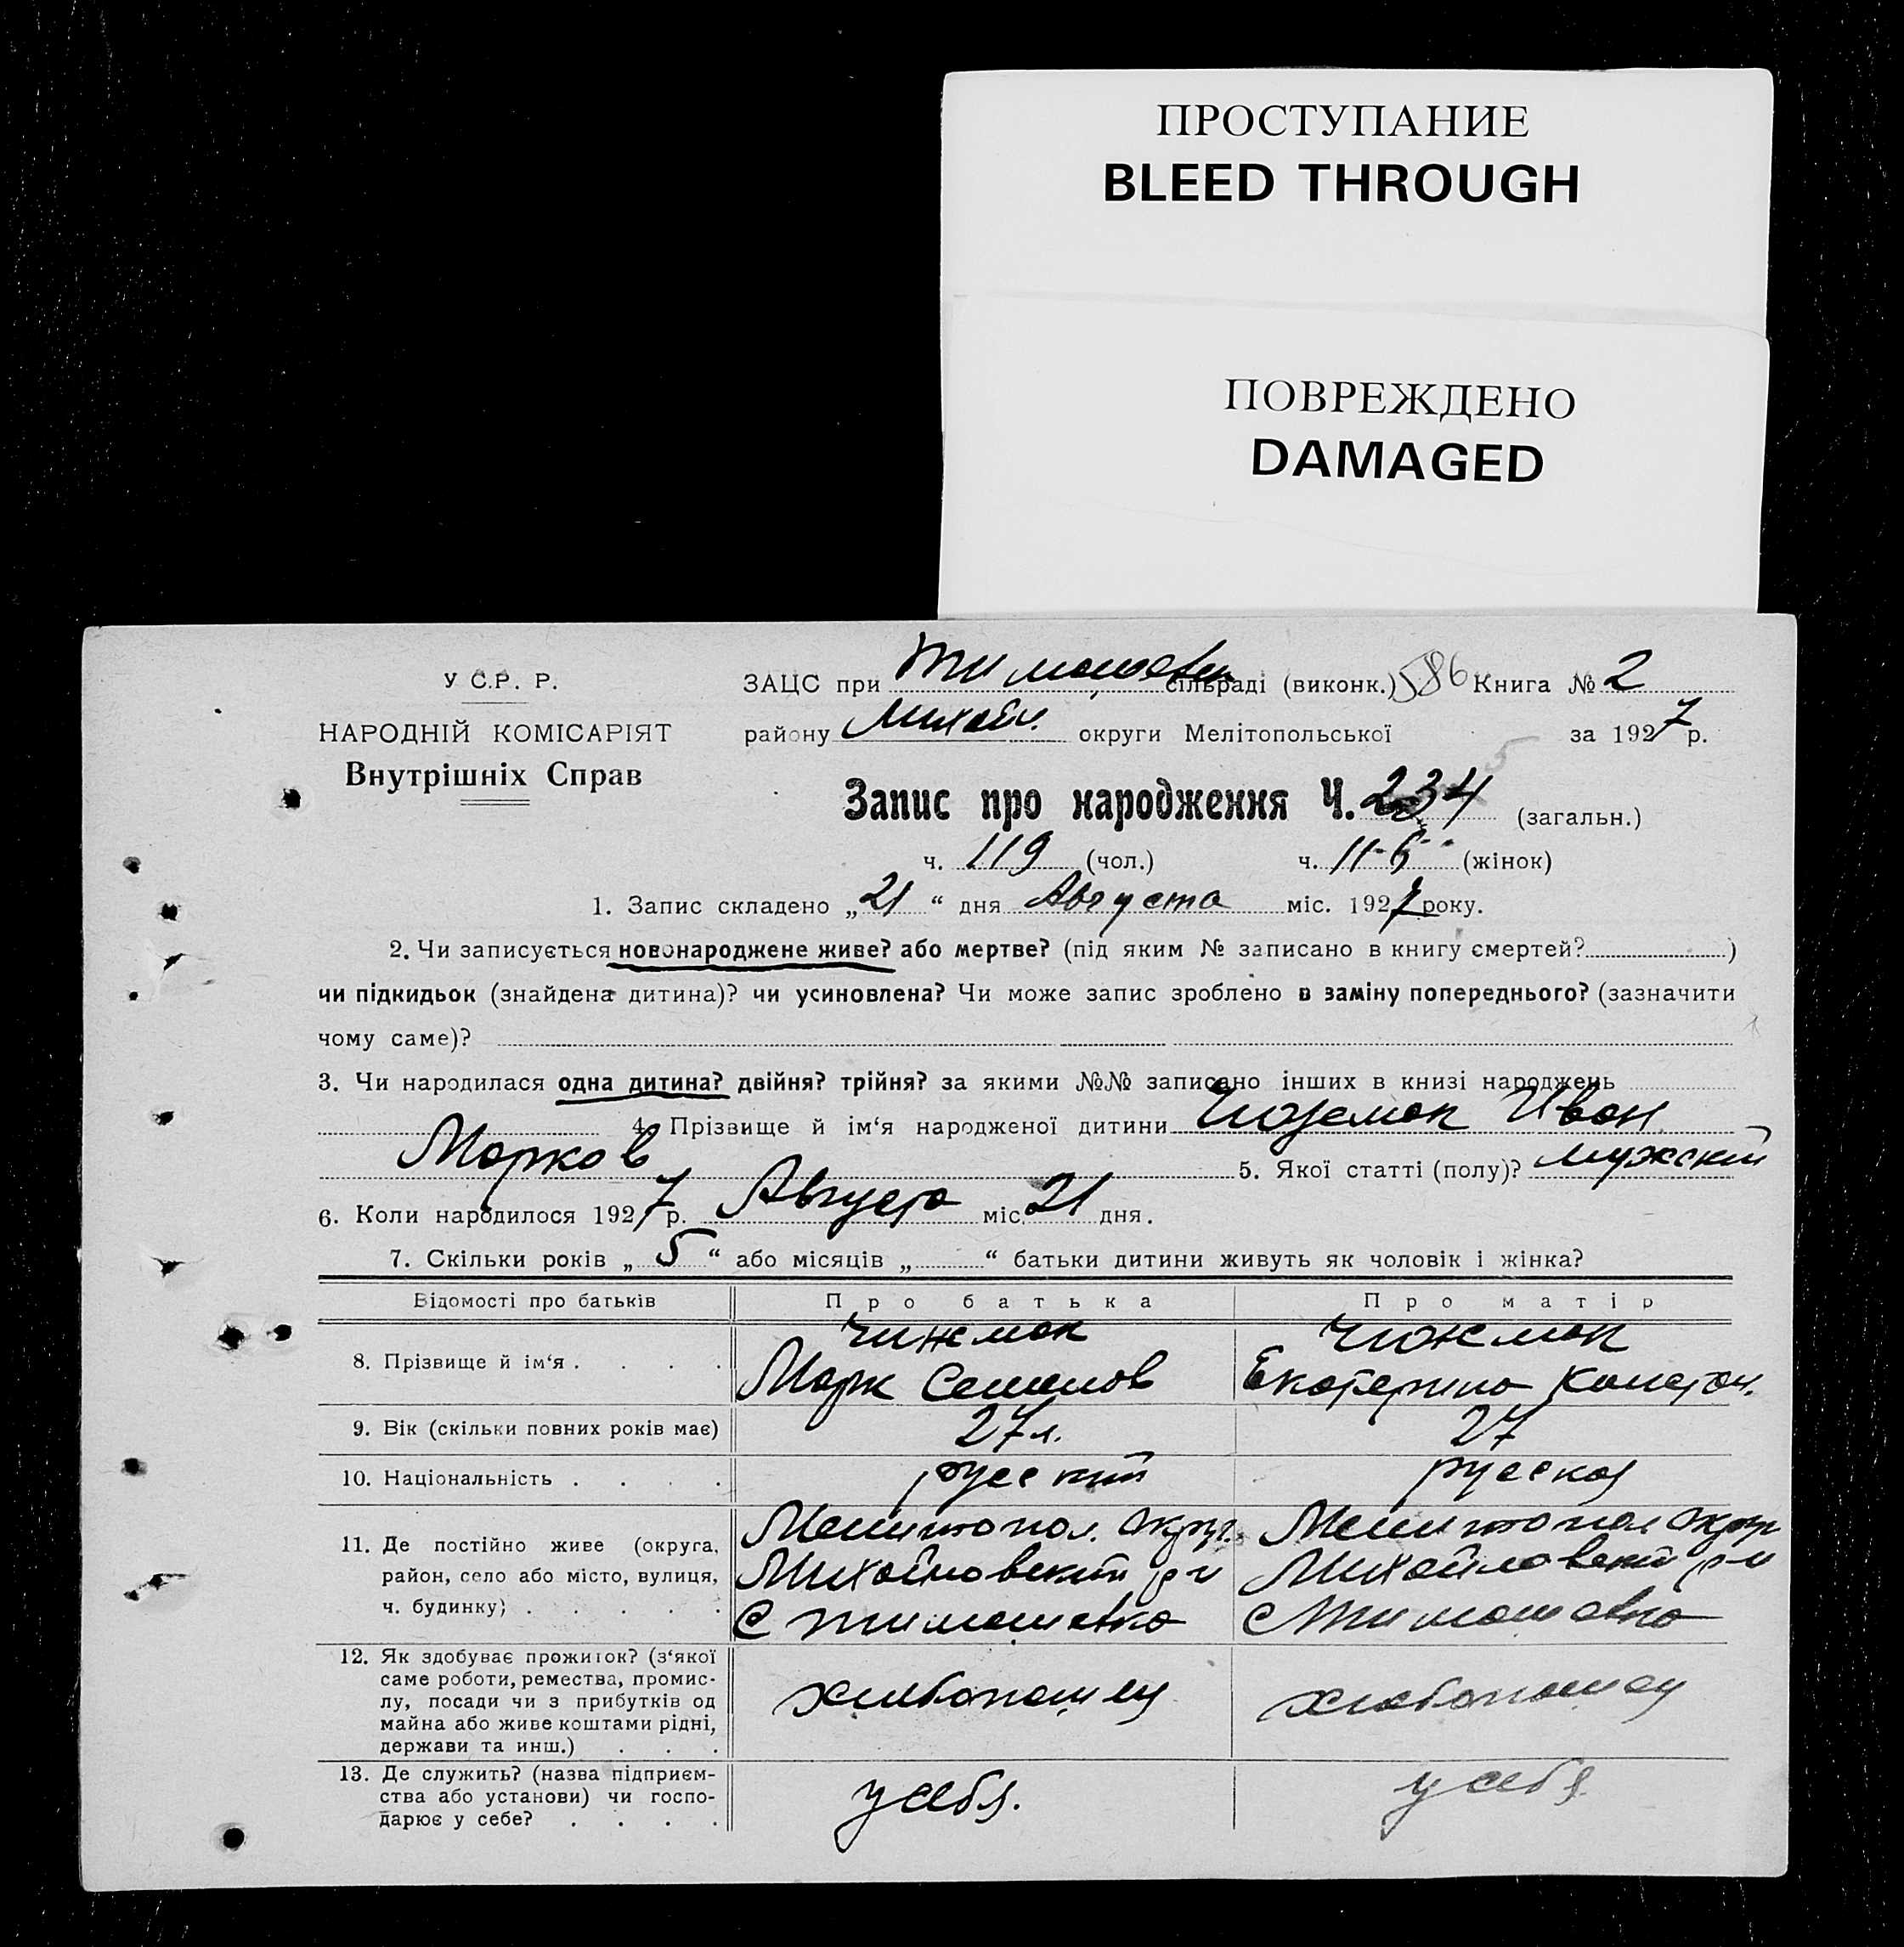 ПРОСТУПАНИЕ
BLEED THROUGH
ПОВРЕЖДЕНО
DAMAGED
У С.Р. Р.
НАРОДНІЙ КОМІСАРІЯТ
Внутрішніх Справ
ЗАЦС при Тимошевк сільраді (виконк.) 586 Книга № 2
району Михайл. округи Мелітопольської за 1927 р.
Запис про народження Ч. 234 (загальн.)
ч. 119 (чол.) ч. 115 (жінок)
1. Запис складено „21“ дня Августа міс. 1927 року.
2. Чи записується новонароджене живе? або мертве? (під яким № записано в книгу смертей? )
чи підкидьок (знайдена дитина)? чи усиновлена? Чи може запис зроблено в заміну попереднього? (зазначити
чому саме)?
3. Чи народилася одна дитина? двійня? трійня? за якими №№ записано інших в книзі народжень
4. Прізвище й ім‘я народженої дитини Чижмак Иван
Марков 5. Якої статті (полу)? мужский
6. Коли народилося 1927 р. Августа міс. 21 дня.
7. Скільки років „5“ або місяців „ “ батьки дитини живуть як чоловік і жінка?
Відомості про батьків Про батька Про матір
8. Прізвище й ім‘я . . . . Чижмак Марк Семенов Чижмак Екатерина
9. Вік (скільки повних років має) 27 л. 27
10. Національність . . . . русский русская
11. Де постійно живе (округа, Мелитопол. округ. Мелитопол округ
район, село або місто, вулиця, Михайловский р-н Михайловский р-н
ч. будинку) . . . . . С Тимошевка С Тимошевка
12. Як здобуває прожиток? (з‘якої
саме роботи, ремества, промис-
лу, посади чи з прибутків од хлебопашец хлебопашец
майна або живе коштами рідні,
держави та инш.) . . .
13. Де служить? (назва підприєм-
ства або установи) чи госпо- у себя. у себя.
дарює у себе? . . . .